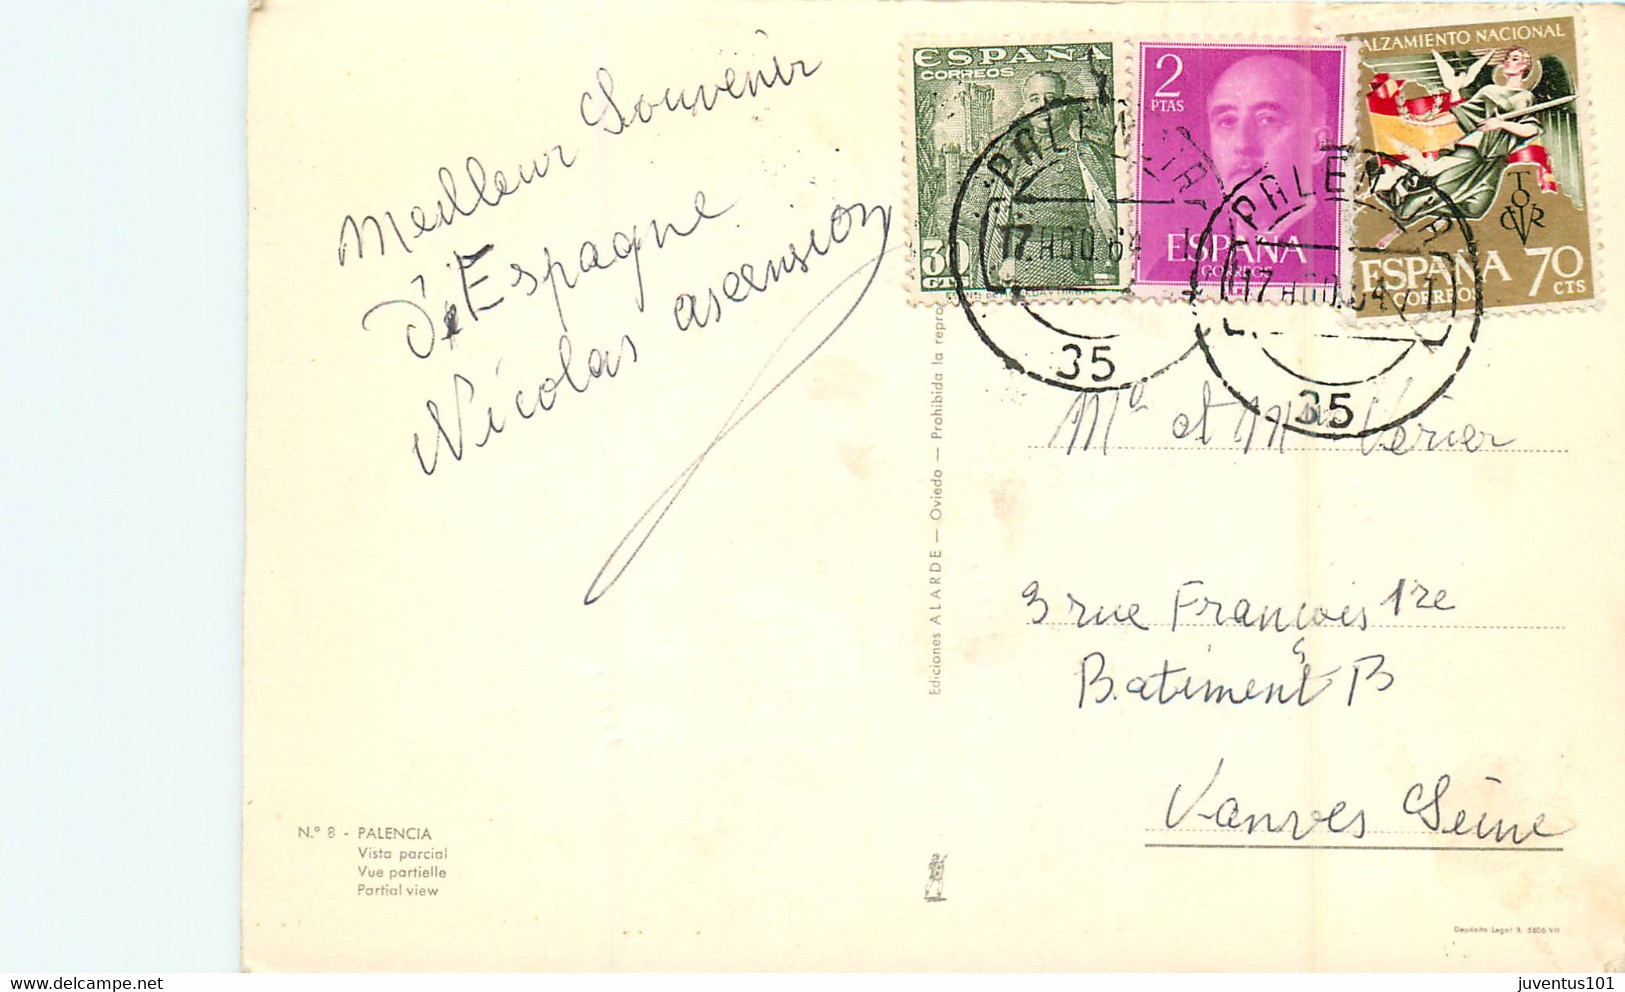 Meilleur Souvenir
d'Espagne
Nicolas ascension
ESPAÑA
CORREOS
30
CTS
2
PTAS
ESPAÑA
CORREOS
ALZAMIENTO NACIONAL
ESPAÑA 70
CORREOS CTS
PALENCIA
17.AGO.64
35
PALENCIA
17 AGO.64
35
Mr et Mme Vérier
3 rue François 1re
Batiment B
Vanves Seine
Ediciones ALARDE — Oviedo — Prohibida la repro
N.º 8 - PALENCIA
Vista parcial
Vue partielle
Partial view
Depósito Legal B. 5606-VII
juventus101
delcampe.net